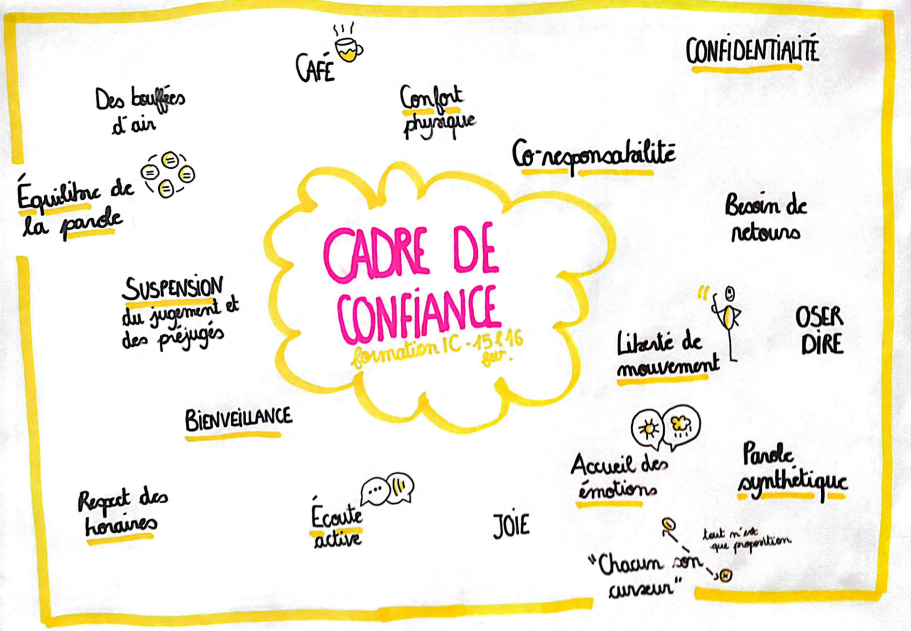 CAFÉ
CONFIDENTIALITÉ
Des bouffées
d'air
Confort
physique
Co-responsabilité
Équilibre de
la parole
Besoin de
retours
CADRE DE
CONFIANCE
formation IC - 15 & 16
fev.
SUSPENSION
du jugement et
des préjugés
Liberté de
mouvement
OSER
DIRE
BIENVEILLANCE
Accueil des
émotions
Parole
synthétique
Respect des
horaires
Écoute
active
JOIE
"Chacun son
curseur"
tout n'est
que proportion